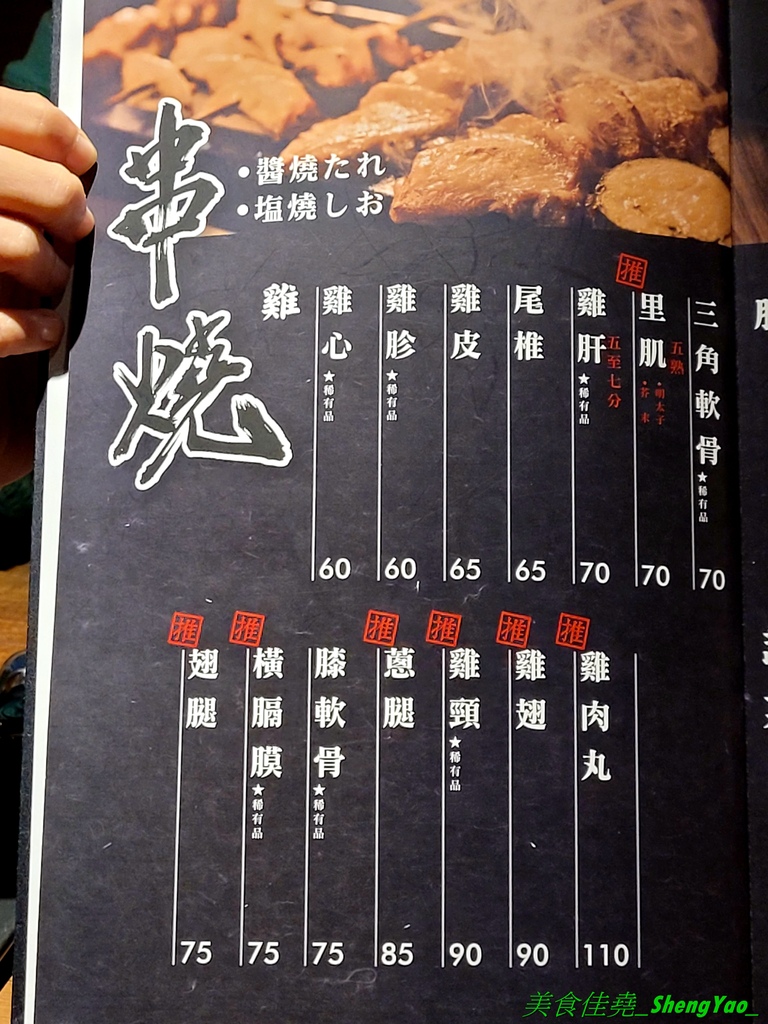 串燒
•醬燒たれ
•塩燒しお
雞
雞心 ★稀有品 60
雞胗 ★稀有品 60
雞皮 65
尾椎 65
雞肝 ★稀有品 五至七分 70
推 里肌 五熟 •明太子 •芥末 70
三角軟骨 ★稀有品 70
推 翅腿 75
推 橫膈膜 ★稀有品 75
膝軟骨 ★稀有品 75
推 蔥腿 85
推 雞頸 ★稀有品 90
推 雞翅 90
推 雞肉丸 110
美食佳堯_ShengYao_